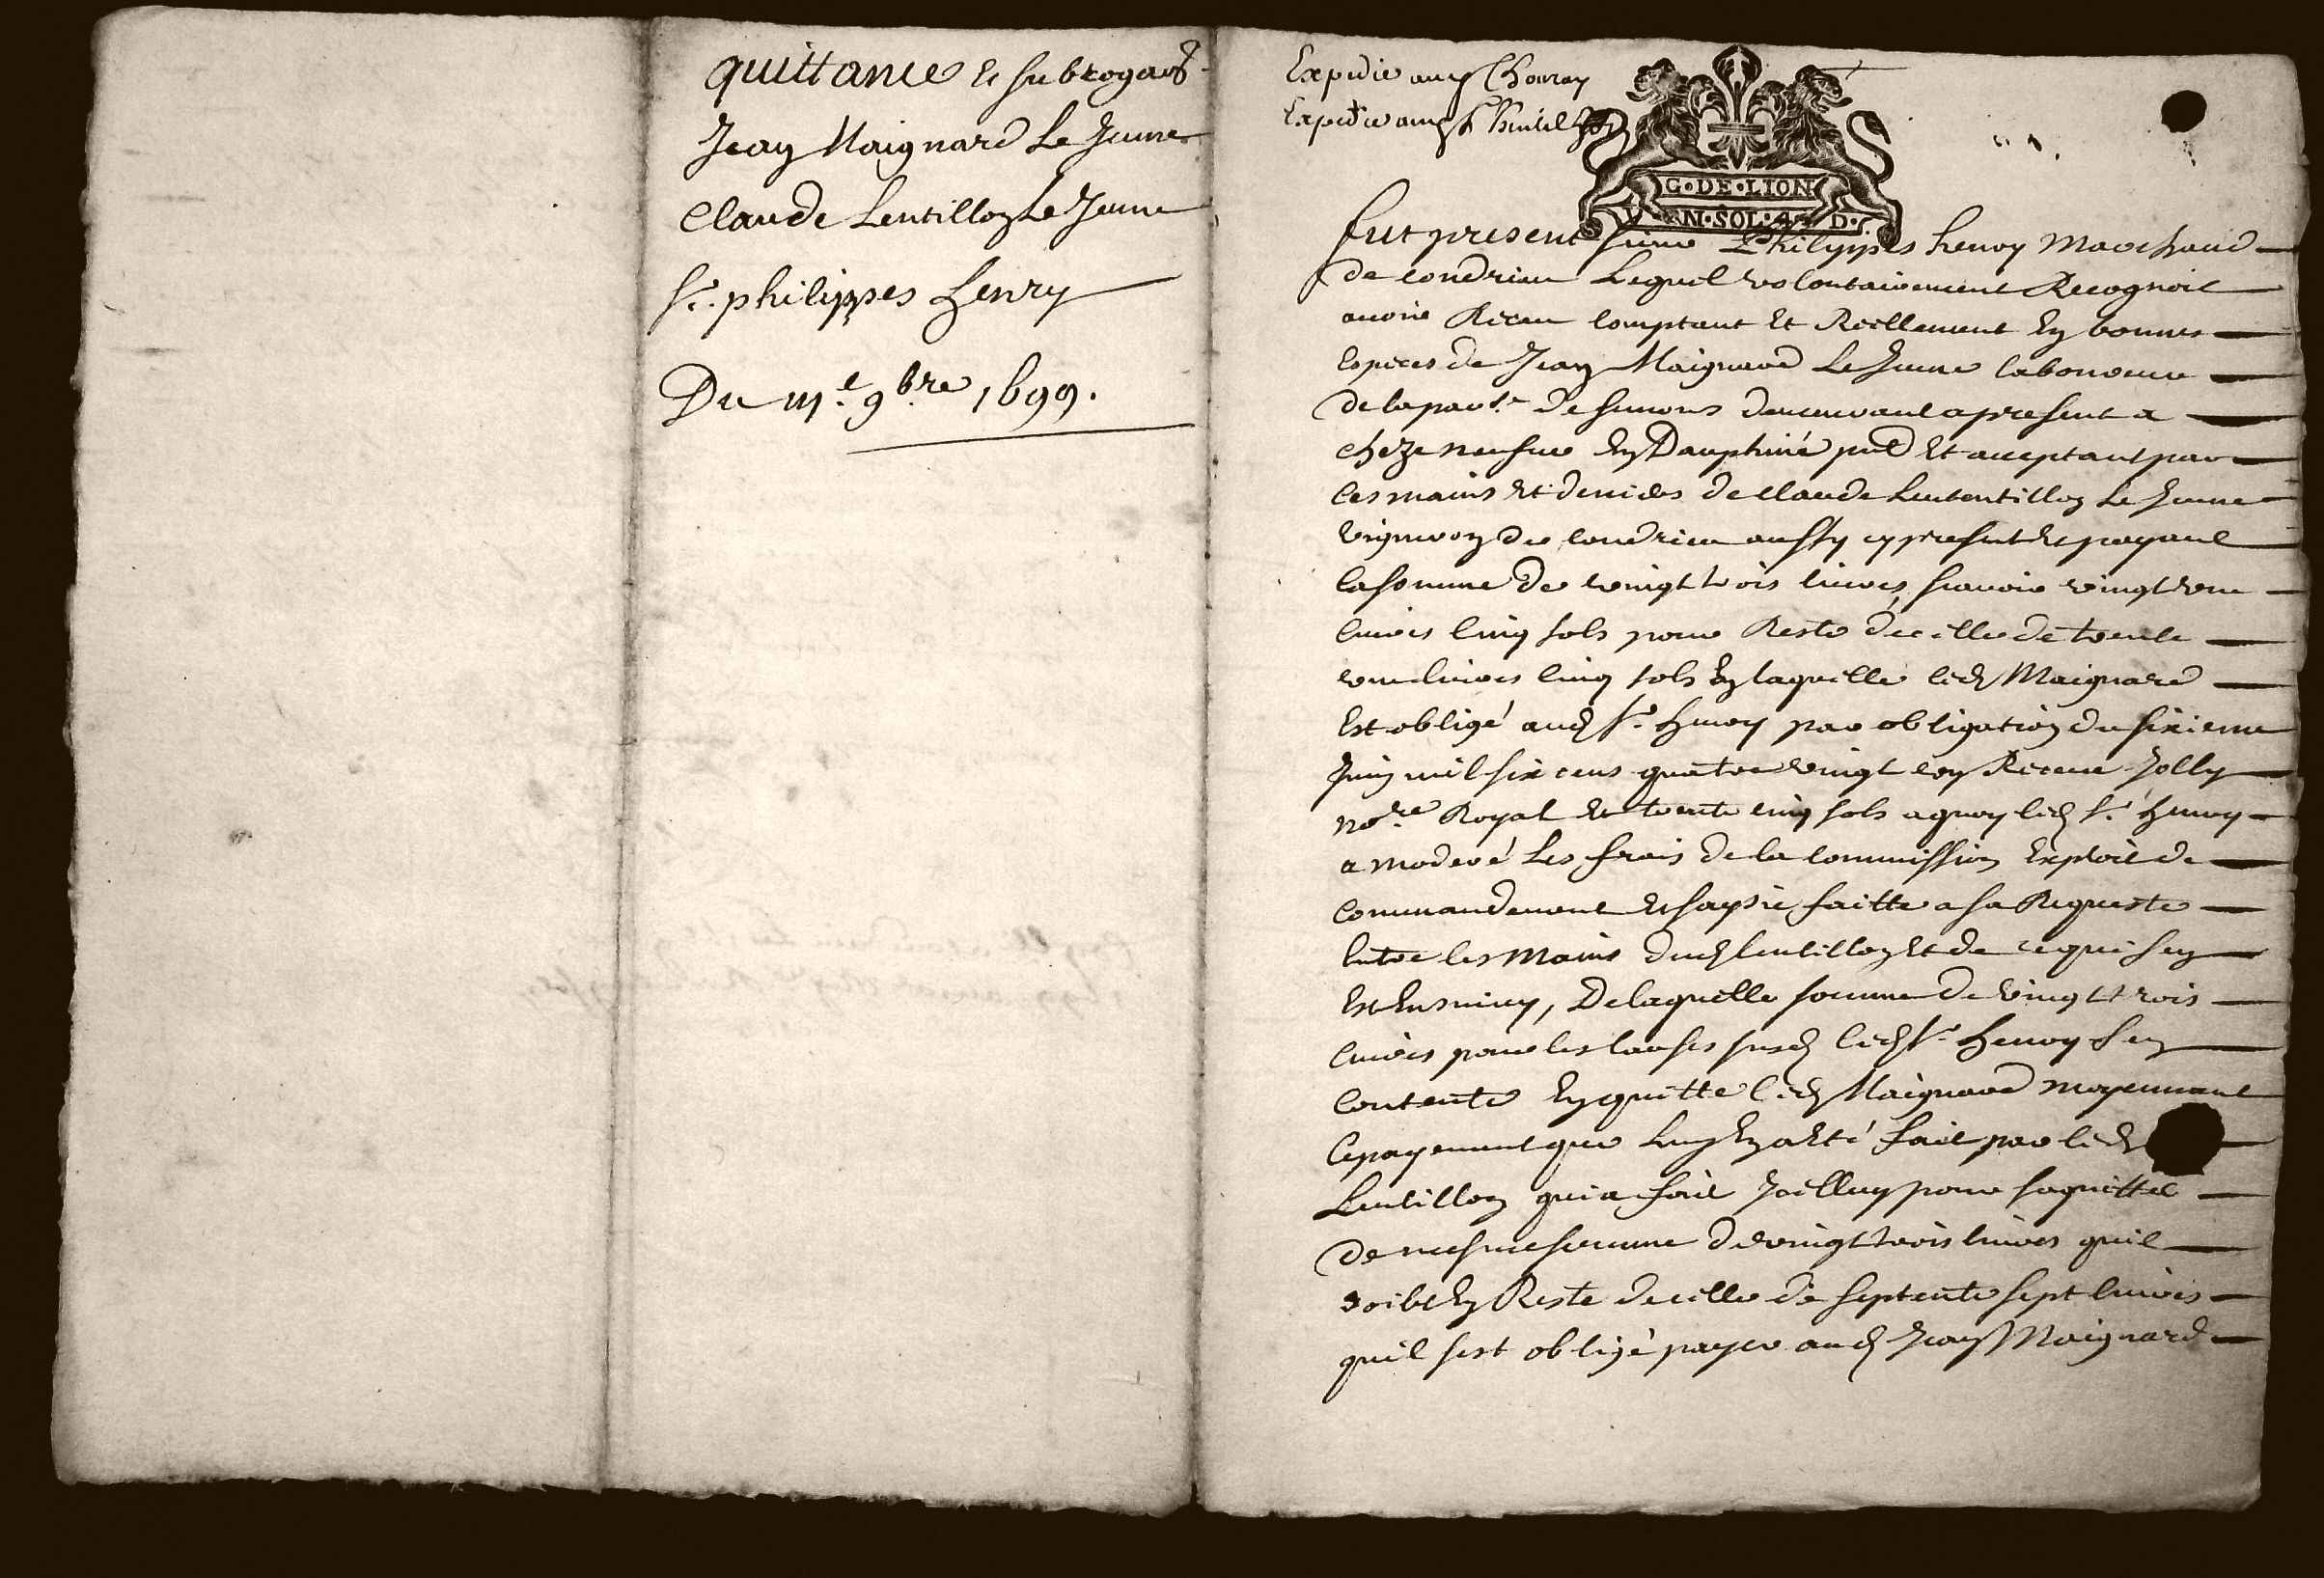 quittance et subrogaõn
Jean Maignard Le Jeune
Claude Lentillon Le Jeune
Sr. philippes henry
Du 3e. 9bre 1699.
Expedie aud
Expedie aud Lentillon
G·DE·LION
V·N·SOL·4·D·
Fut present sieur Philippes henry Marchand
de condrieu Lequel volontairement Recognoit
avoir Receu comptant et Reellement En bonnes
especes de Jean Maignard Le Jeune laboureur
de la parse. De simons demeurant a present a
cheze neufue En Dauphiné pnt Et acceptant par
les mains et deniers de claude Lentillon Le Jeune
vigneron de condrieu aussy cy present et payant
la somme de vingt trois livres, scavoir vingt une
livres cinq sols pour Reste de celle de trente
une livres cinq sols En laquelle led Maignard
Est obligé aud Sr. henry par obligation du sixieme
Juin mil six cens quatre vingt Receue Jolly
nore Royal et trente cinq sols a quoy led Sr. henry
a moderé les frais de la commission Exploit de
commandement et saysie faitte a sa Requeste
Entre les mains dud Lentillon Et de ce qui sen
Est Ensuivy, De laquelle somme de vingt trois
livres pour les causes susd led Sr. henry sen
contente En quitte led Maignard moyennant
le payement que luy En a Esté fait par led
Lentillon qui a fait Icelluy pour saquitter
de mesme somme de vingt trois livres quil
doibt En Reste de celle de septente sept livres
quil sest obligé payer aud Jean Maignard